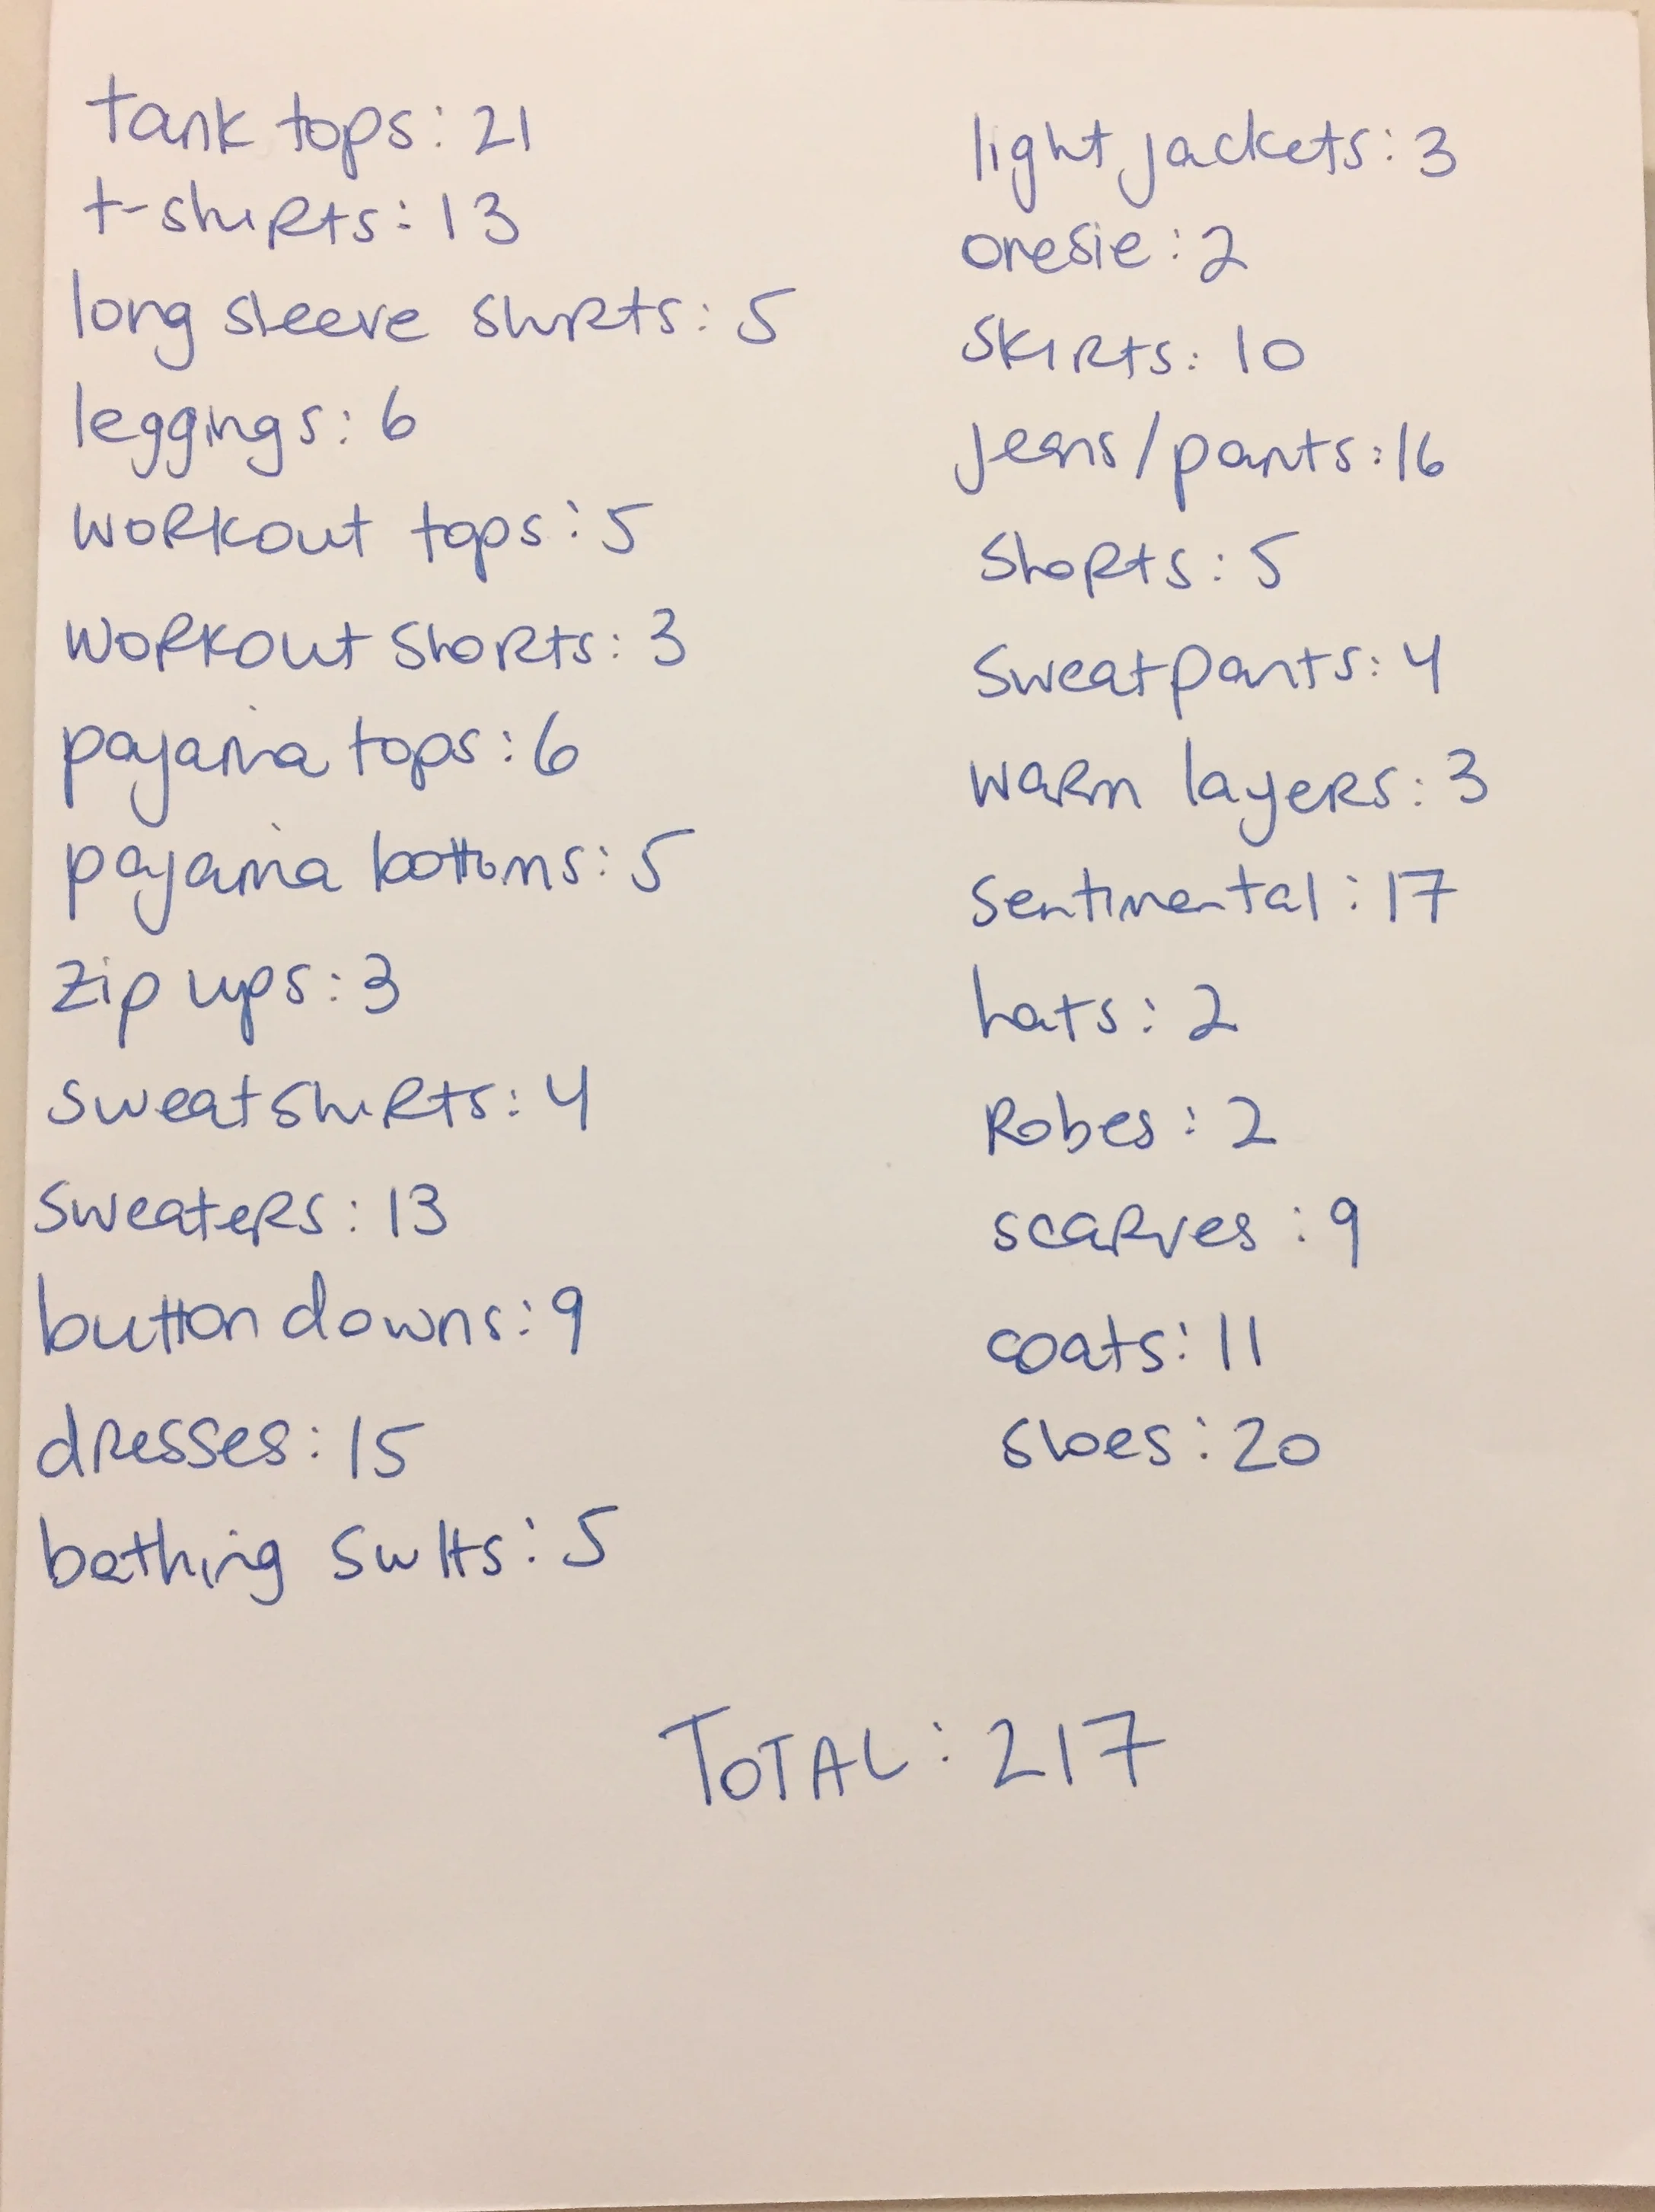 tank tops: 21
t-shirts: 13
long sleeve shirts: 5
leggings: 6
workout tops: 5
workout shorts: 3
pajama tops: 6
pajama bottoms: 5
zip ups: 3
sweatshirts: 4
sweaters: 13
button downs: 9
dresses: 15
bathing suits: 5
light jackets: 3
onesie: 2
skirts: 10
jeans/pants: 16
shorts: 5
sweatpants: 4
warm layers: 3
sentimental: 17
hats: 2
Robes: 2
scarves: 9
coats: 11
shoes: 20
TOTAL: 217